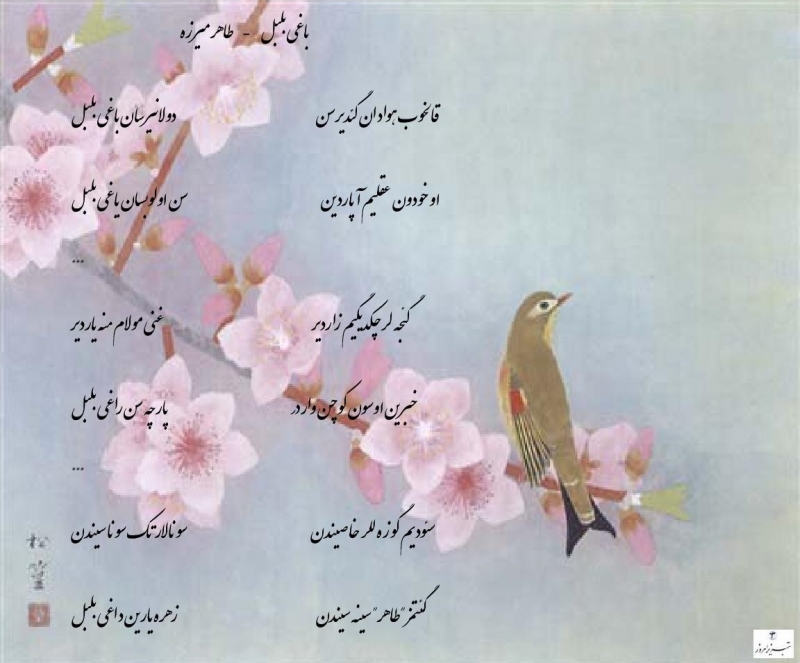 باغی بلبل - طاهر میرزه
قانخوب هوادان گئدیرسن دولانیرسان باغی بلبل
او خودون عقلیم آپاردین سن اولوبسان یاغی بلبل
...
گئجه لر چکدیگیم زاردیر غنی مولام منه یاردیر
خبرین اوسون کوچن واردر پارچه سن راغی بلبل
...
سئودیم گوزه للر خاصیندن سونالار تک سوناسیندن
گئتمز "طاهر" سینه سیندن زهره یارین داغی بلبل
تبریز امروز